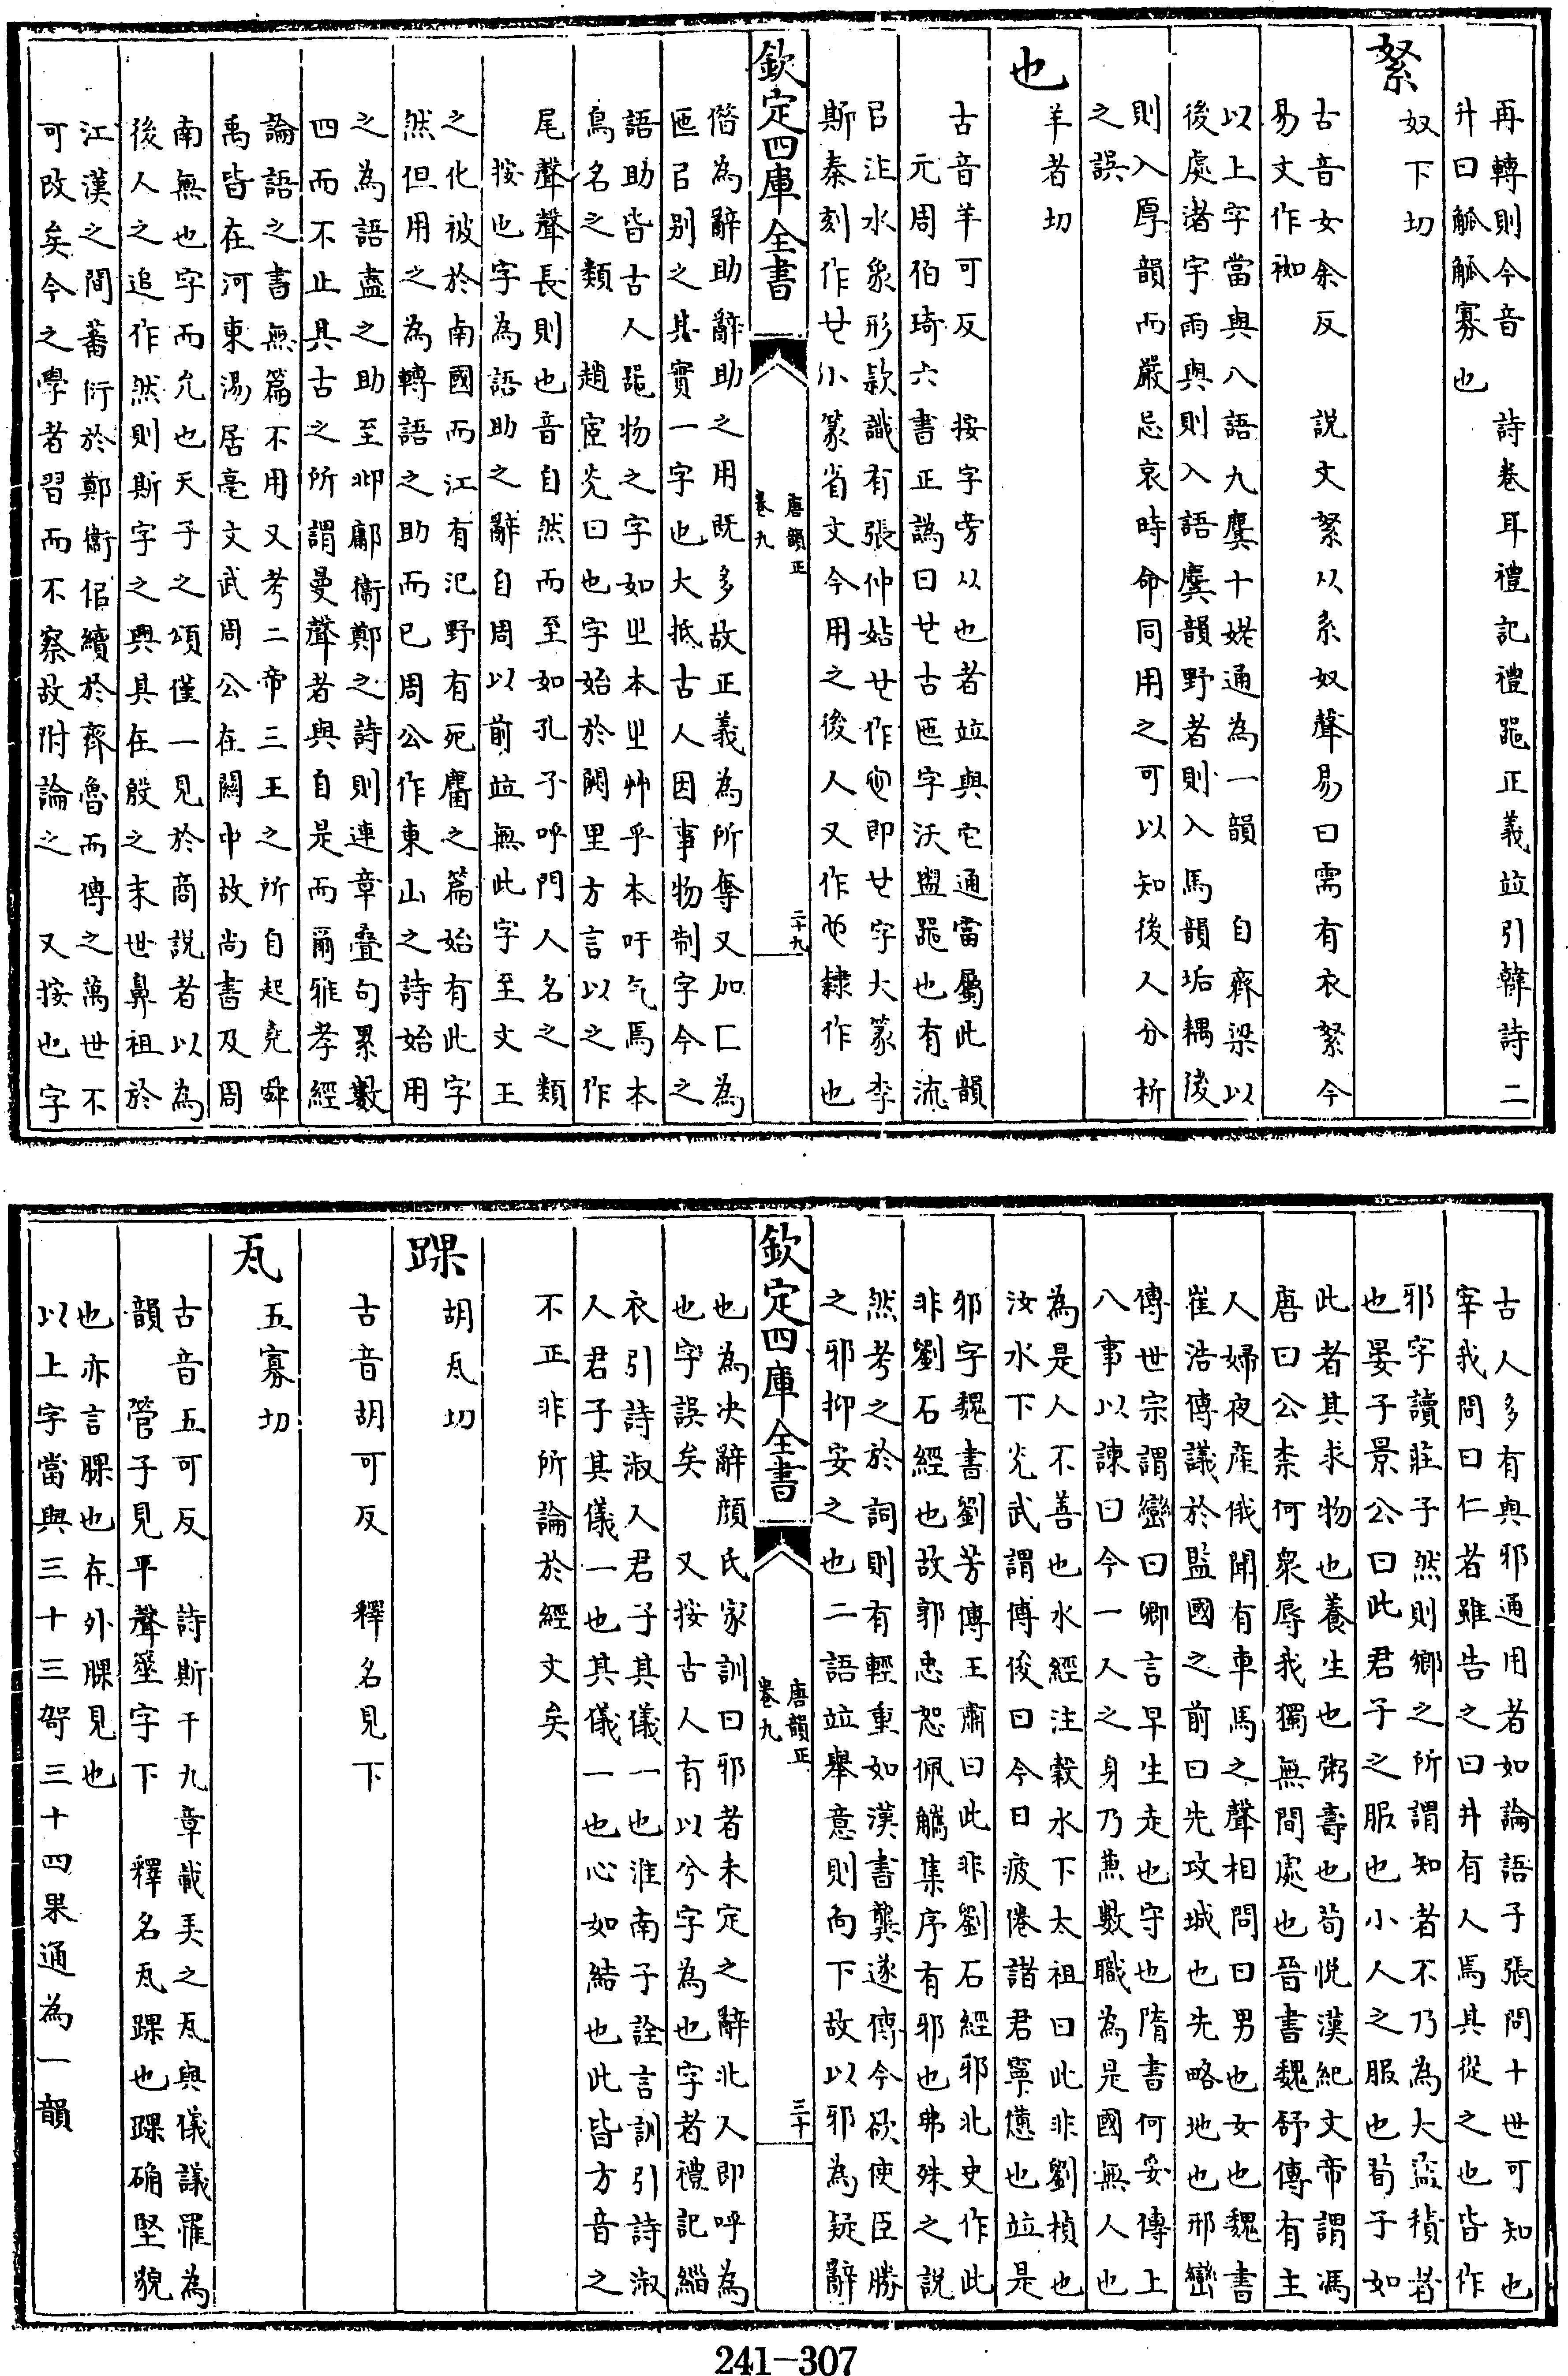 再轉則今音　詩卷耳禮記禮器正義竝引韓詩二
升曰觚觚寡也
絮
奴下切
古音女余反　說文絮以糸奴聲易曰需有衣絮今
易文作袽
以上字當與八語九麌十姥通為一韻　自齊梁以
後處渚宇雨與則入語麌韻野者則入馬韻垢耦後
則入厚韻而嚴忌哀時命同用之可以知後人分析
之誤
也
羊者切
古音羊可反　按字旁以也者竝與它通當屬此韻
元周伯琦六書正譌曰也古匜字沃盥器也有流
㠯注水象形款識有張仲姞也作也即也字大篆李
斯秦刻作也小篆省文今用之後人又作也隸作也
欽定四庫全書
唐韻正
卷九
二十九
偕為辭助辭助之用既多故正義為所奪又加匚為
匜㠯别之其實一字也大抵古人因事物制字今之
語助皆古人器物之字如㞢本㞢艸乎本吁气焉本
鳥名之類　趙宦光曰也字始於闕里方言以之作
尾聲聲長則也音自然而至如孔子呼門人名之類
按也字為語助之辭自周以前竝無此字至文王
之化被於南國而江有汜野有死麕之篇始有此字
然但用之為轉語之助而已周公作東山之詩始用
之為語盡之助至邶鄘衞鄭之詩則連章叠句累數
四而不止具古之所謂曼聲者與自是而爾雅孝經
論語之書無篇不用又考二帝三王之所自起堯舜
禹皆在河東湯居亳文武周公在關中故尚書及周
南無也字而允也天子之頌僅一見於商說者以為
後人之追作然則斯字之興其在殷之末世鼻祖於
江漢之間蕃衍於鄭衞佀續於齊魯而傳之萬世不
可改矣今之學者習而不察故附論之　又按也字
古人多有與邪通用者如論語子張問十世可知也
宰我問曰仁者雖告之曰井有人焉其從之也皆作
邪字讀莊子然則鄉之所謂知者不乃為大盜積者
也晏子景公曰此君子之服也小人之服也荀子如
此者其求物也養生也粥壽也荀悅漢紀文帝謂馮
唐曰公柰何衆辱我獨無間處也晉書魏舒傳有主
人婦夜産俄聞有車馬之聲相問曰男也女也魏書
崔浩傳議於監國之前曰先攻城也先略地也邢巒
傳世宗謂巒曰卿言早生走也守也隋書何妥傳上
八事以諫曰今一人之身乃兼數職為是國無人也
為是人不善也水經注穀水下太祖曰此非劉楨也
汝水下光武謂傅俊曰今日疲倦諸君寧憊也竝是
邪字魏書劉芳傳王肅曰此非劉石經邪北史作此
非劉石經也故郭忠恕佩觿集序有邪也弗殊之說
然考之於詞則有輕重如漢書龔遂傳今欲使臣勝
之邪抑安之也二語竝舉意則向下故以邪為疑辭
欽定四庫全書
唐韻正
卷九
三十
也為決辭顔氏家訓曰邪者未定之辭北人即呼為
也字誤矣　又按古人有以兮字為也字者禮記緇
衣引詩淑人君子其儀一也淮南子詮言訓引詩淑
人君子其儀一也其儀一也心如結也此皆方音之
不正非所論於經文矣
踝
胡瓦切
古音胡可反　釋名見下
瓦
五寡切
古音五可反　詩斯干九章載弄之瓦與儀議罹為
韻　管子見平聲筮字下　釋名瓦踝也踝确堅貌
也亦言腂也在外腂見也
以上字當與三十三哿三十四果通為一韻
241-307